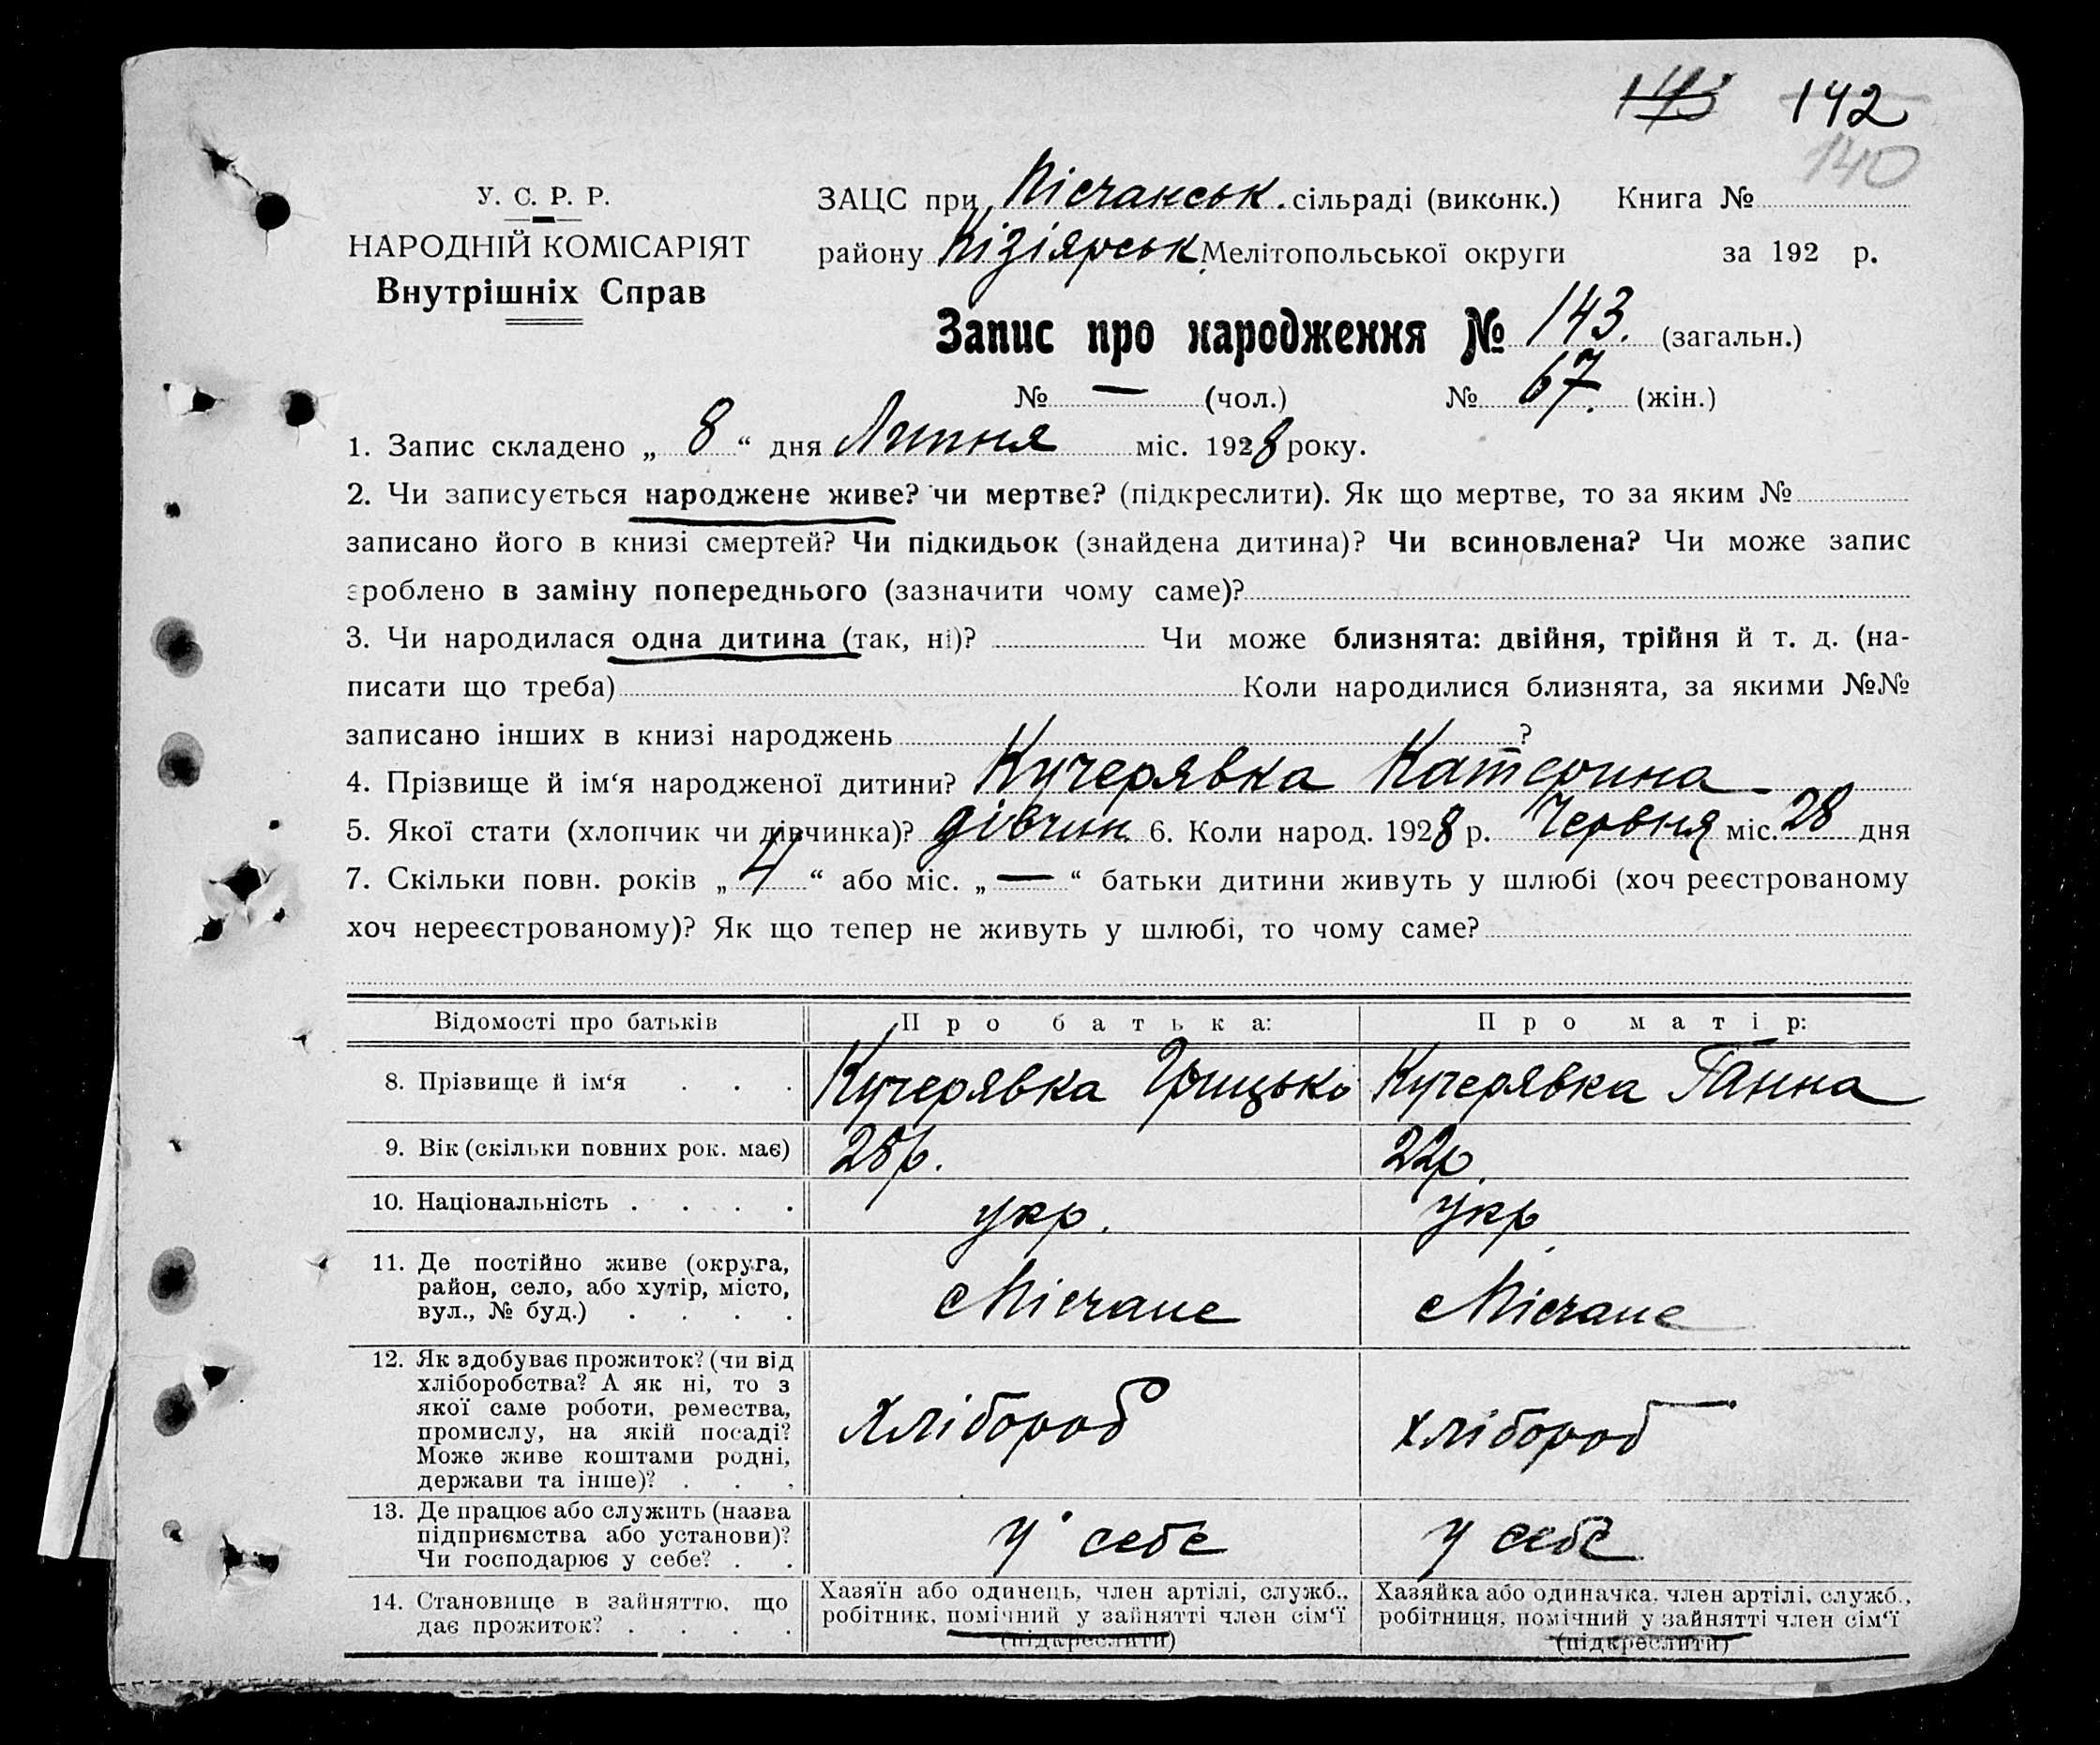 143 142
140
У. С. Р. Р.
НАРОДНІЙ КОМІСАРІЯТ
Внутрішніх Справ
ЗАЦС при Пісчанськ. сільраді (виконк.) Книга №
району Кізіярськ Мелітопольської округи за 192 р.
Запис про народження № 143. (загальн.)
№ — (чол.) № 67. (жін.)
1. Запис складено „ 8 “ дня Липня міс. 1928 року.
2. Чи записується народжене живе? чи мертве? (підкреслити). Як що мертве, то за яким №
записано його в книзі смертей? Чи підкидьок (знайдена дитина)? Чи всиновлена? Чи може запис
зроблено в заміну попереднього (зазначити чому саме)?
3. Чи народилася одна дитина (так, ні)? Чи може близнята: двійня, трійня й т. д. (на-
писати що треба) Коли народилися близнята, за якими №№
записано інших в книзі народжень ?
4. Прізвище й ім‘я народженої дитини? Кучерявка Катерина
5. Якої стати (хлопчик чи дівчинка)? дівчин. 6. Коли народ. 1928 р. Червня міс. 28 дня
7. Скільки повн. років „ 4 “ або міс. „ — “ батьки дитини живуть у шлюбі (хоч реєстрованому
хоч нереєстрованому)? Як що тепер не живуть у шлюбі, то чому саме?
Відомості про батьків Про батька: Про матір:
8. Прізвище й ім‘я . . . Кучерявка Грицько Кучерявка Ганна
9. Вік (скільки повних рок. має) 28р. 22р
10. Національність . . . . укр. укр
11. Де постійно живе (округа,
район, село, або хутір, місто,
вул., № буд.) . . . .
с Пісчане с Пісчане
12. Як здобуває прожиток? (чи від
хліборобства? А як ні, то з
якої саме роботи, ремества,
промислу, на якій посаді?
Може живе коштами родні,
держави та інше)? . . .
Хлібороб хлібороб
13. Де працює або служить (назва
підприємства або установи)?
Чи господарює у себе? . .
У себе у себе
14. Становище в зайняттю, що
дає прожиток? . . . .
Хазяїн або одинець, член артілі, служб.,
робітник, помічний у зайнятті член сім‘ї
(підкреслити)
Хазяйка або одиначка, член артілі, служб.,
робітниця, помічний у зайнятті член сім‘ї
(підкреслити)